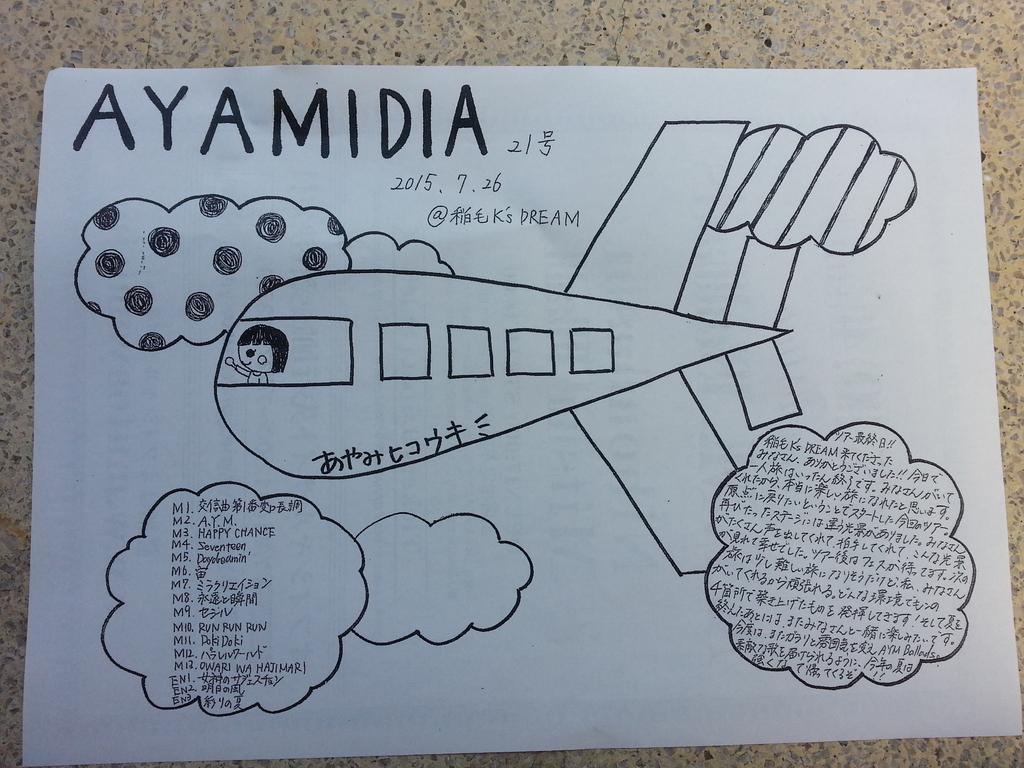 AYAMIDIA 21号
2015.7.26
@稲毛K's DREAM
あやみヒコウキ
M1. 交信曲第1番変ロ長調
M2. A.Y.M.
M3. HAPPY CHANCE
M4. Seventeen
M5. Daydreamin'
M6. 宙
M7. ミラクリエイション
M8. 永遠と瞬間
M9. セシル
M10. RUN RUN RUN
M11. Doki Doki
M12. パラレルワールド
M13. OWARI WA HAJIMARI
EN1. 女神のサジェスチョン
EN2. 明日の風
EN3. 彩りの夏
ツアー最終日!!
稲毛K's DREAM 来てくださった
みなさん、ありがとうございました!! 今日で
一人旅はいったん終了です。みなさんがいて
くれたから、本当に楽しい旅になれたと思います。
原点に戻りたいということでスタートした今回のツアー。
再びたったステージには違う光景がありました。みなさん
がたくさん声を出してくれて、拍手してくれて、こんな光景
が見れて幸せでした。ツアー後はフェスが待ってます。次の
旅は少し難しい旅になりそうだけど、私、みなさん
がいてくれるから頑張れる。どんな環境でもこの
4箇所で築き上げたものを発揮してきます!そして夏を
終えたあとには、またみなさんと一緒に楽しみたいです。
今度は、またがらりと雰囲気を変え AYM Ballads。
素敵な歌を届けられるように、今年の夏は
強くなって帰ってくるぞ!!